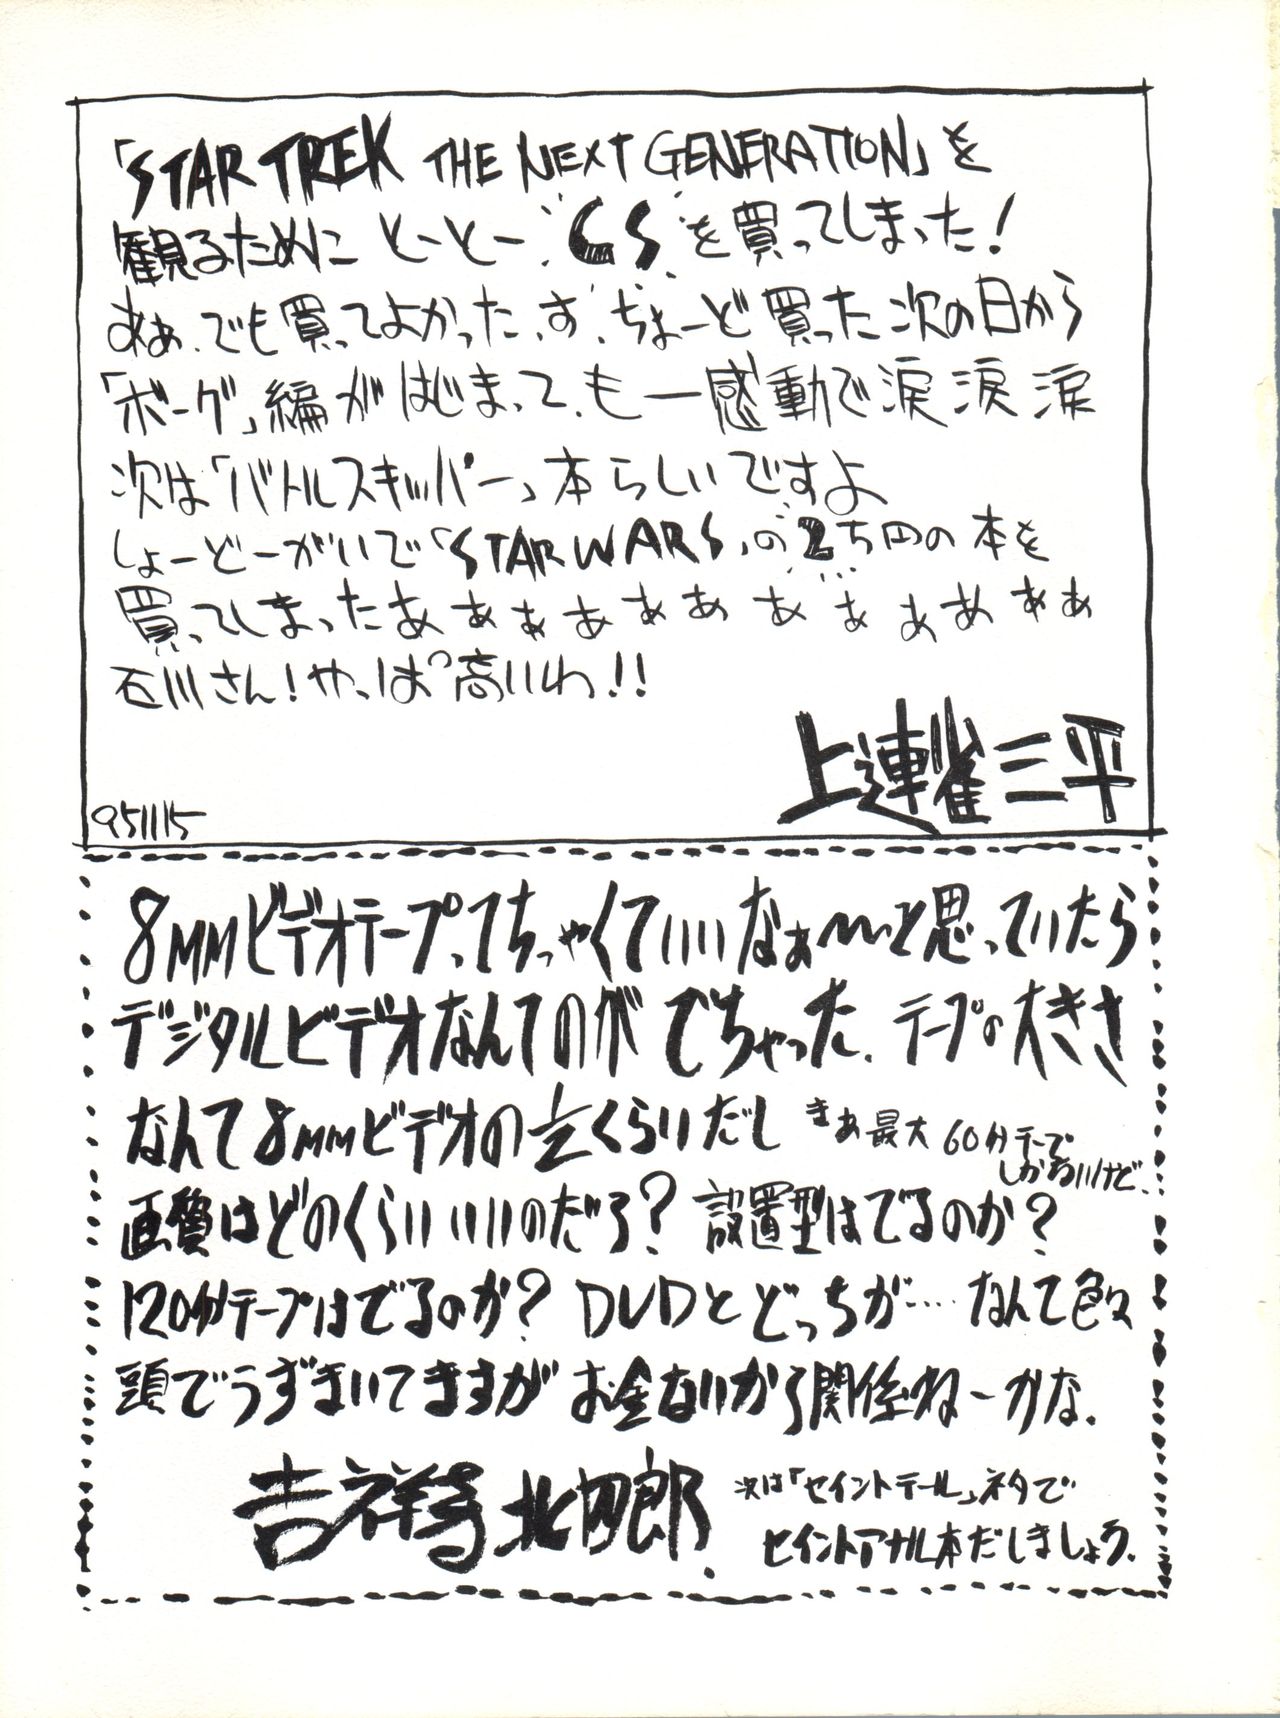 「STAR TREK THE NEXT GENERATION」を
観るために とーとー CS を買ってしまった!
あぁ、でも買ってよかったっす、ちょーど買った次の日から
「ボーグ」編がはじまって、も一感動で涙涙涙
次は「バトルスキッパー」本らしいですよ
しょーどーがいで「STAR WARS」の2ち円の本を
買ってしまったあぁぁぁぁぁぁぁぁぁぁぁ
石川さん!やっぱ高いわ!!
上連雀三平
951115
8MMビデオテープってちっちゃくていいなぁ〜と思っていたら
デジタルビデオなんてのがでちゃった、テープの大きさ
なんて8MMビデオの1/2くらいだし まぁ最大60分テープ
しかないけど、
画質はどのくらいいいのだろ?設置型はでるのか?
120分テープはでるのか?DVDとどっちが‥‥なんて色々
頭でうずまいてますがお金ないから関係ねーかな、
吉祥寺北四郎
次は「セイントテール」ネタで
セイントアナル本だしましょう、